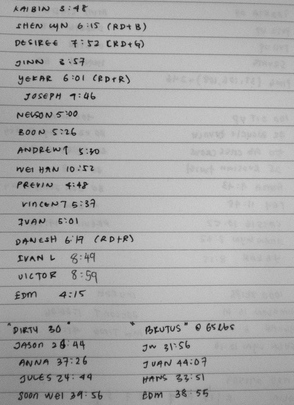 KAIBIN 3:48
SHEN LYN 6:15 (RD+B)
DESIREE 7:52 (RD+G)
JINN 3:57
YEKAR 6:01 (RD+R)
JOSEPH 9:46
NELSON 5:00
BOON 5:26
ANDREWT 5:30
WEI HAN 10:52
PREVIN 4:48
VINCENT 5:37
IVAN 5:01
DANESH 6:19 (RD+R)
IVAN L 8:49
VICTOR 8:59
EDM 4:15
"DIRTY 30" * BRUTUS" @ 65LBS
JASON 28:44 JW 31:56
ANNA 37:26 JUAN 44:07
JULES 24:44 HANS 33:51
SOON WEI 39:56 EDM 38:55